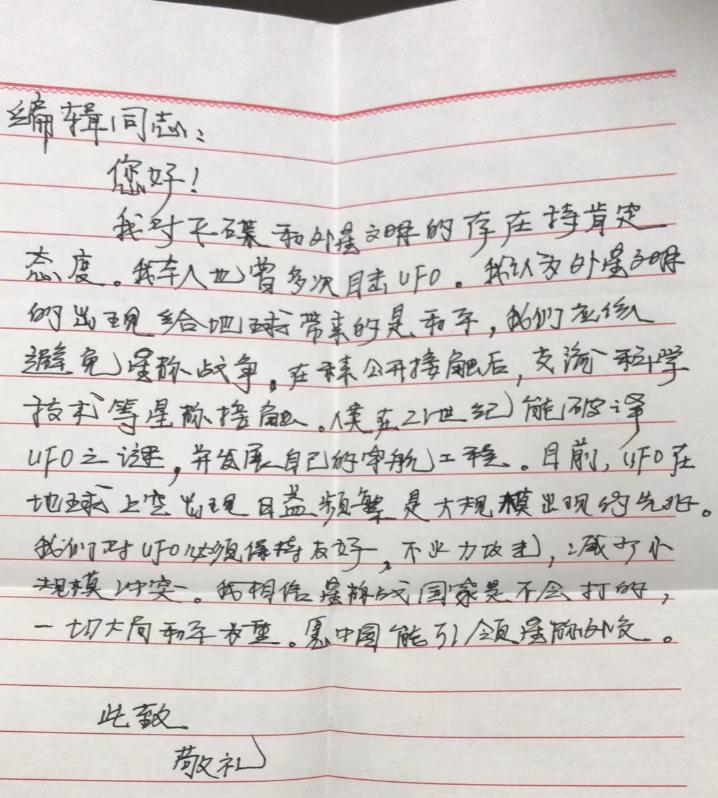 编辑同志：
您好！
我对飞碟和外星文明的存在持肯定
态度。我本人也曾多次目击UFO。我认为外星文明
的出现给地球带来的是和平，我们应该
避免星际战争。在未公开接触后，交流科学
技术等星际接触。使在21世纪能破译
UFO之谜，并发展自己的宇航工程。目前，UFO在
地球上空出现日益频繁是大规模出现的先兆。
我们对UFO必须保持友好，不火力攻击，减少小
规模冲突。我相信星际战国家是不会打的，
一切大局和平为重。愿中国能引领星际外交。
此致
敬礼